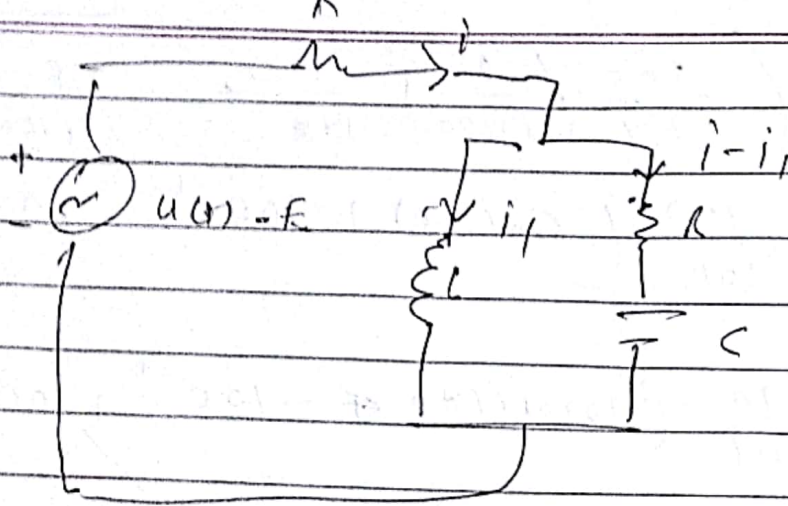 i
+
i-i1
-
u(t) = E
i1
R
L
C